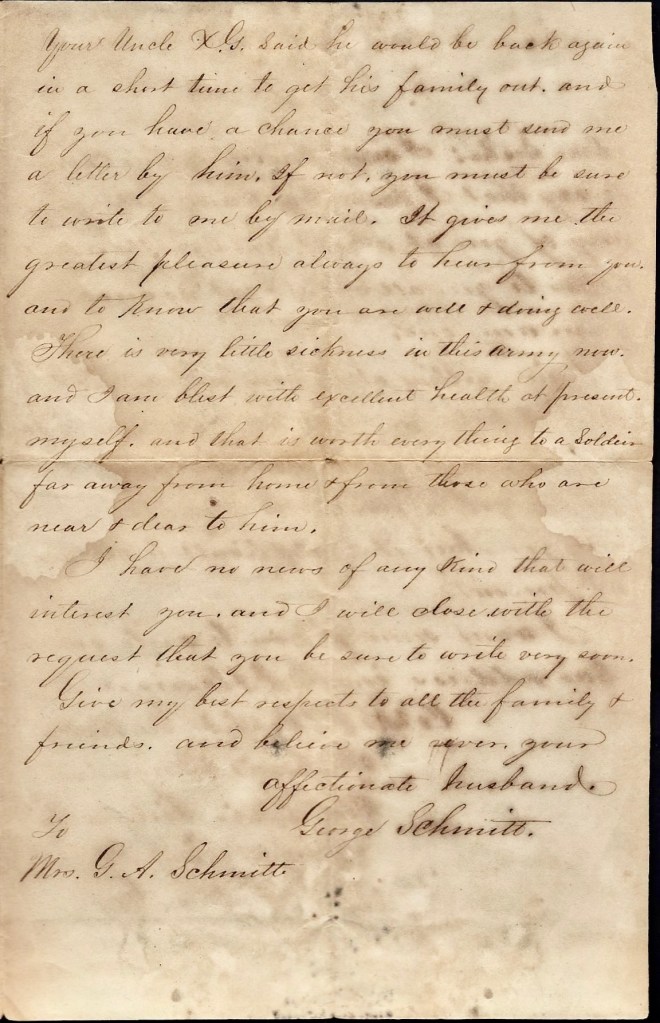 Your Uncle X.G. said he would be back again
in a short time to get his family out. and
if you have a chance you must send me
a letter by him. If not, you must be sure
to write to me by mail. It gives me the
greatest pleasure always to hear from you.
and to know that you are well & doing well.
There is very little sickness in this army now.
and I am blest with excellent health at present.
myself. and that is worth every thing to a Soldier
far away from home & from those who are
near & dear to him.
I have no news of any kind that will
interest you. and I will close with the
request that you be sure to write very soon.
Give my best respects to all the family &
friends. and believe me ever. your
affectionate husband.
George Schmitt.
To
Mrs. G. A. Schmitt